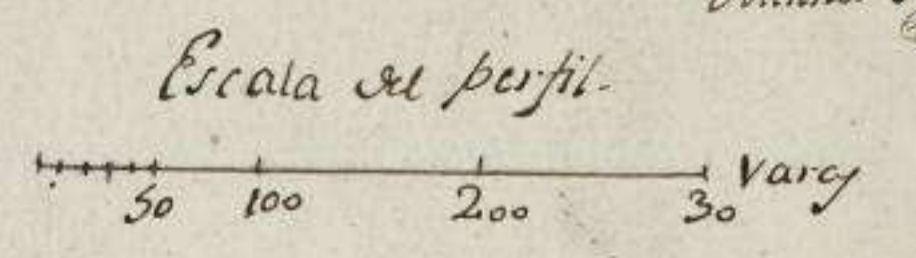 Escala del perfil.
50 100 200 30 Varas